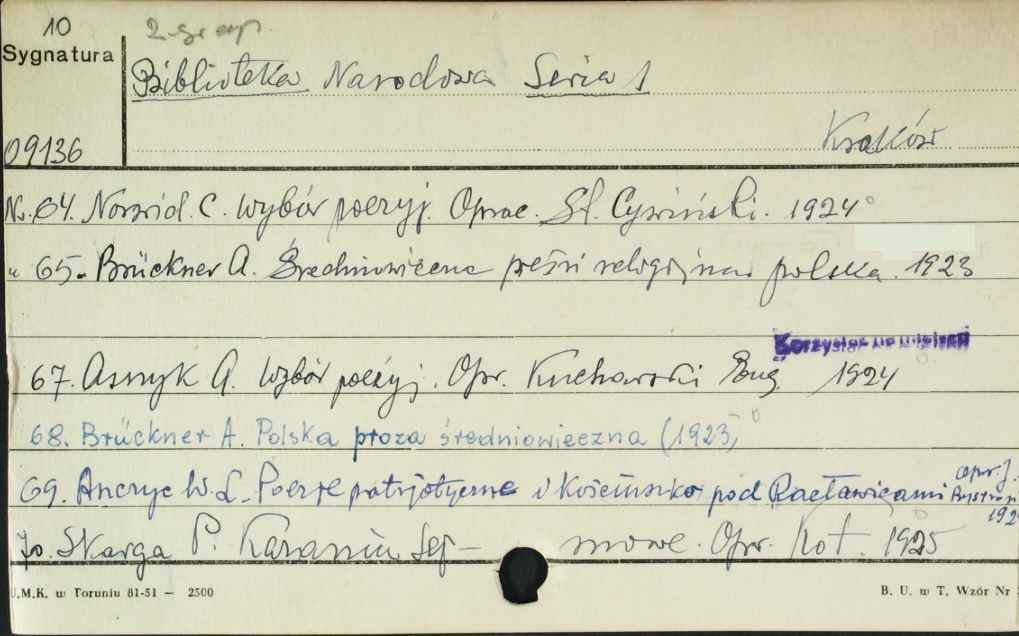 10 2-gi egz.
Sygnatura
Biblioteka Narodowa Seria 1
09136 Kraków
Nr. 64. Norwid C. Wybór poezyj. Oprac. St. Cywiński. 1924
" 65. Brückner A. Średniowieczna pieśń religijna polska. 1923
Korzystać na miejscu
67. Asnyk A. Wybór poezyj. Opr. Kucharski Eug. 1924
68. Brückner A. Polska proza średniowieczna (1923)
69. Anczyc W. L. Poezje patrjotyczne i Kościuszko pod Racławicami opr. J.
70. Skarga P. Kazania Sej- mowe. Opr. Kot. 1925
U.M.K. w Toruniu 81-51 — 2500 B. U. w T. Wzór Nr